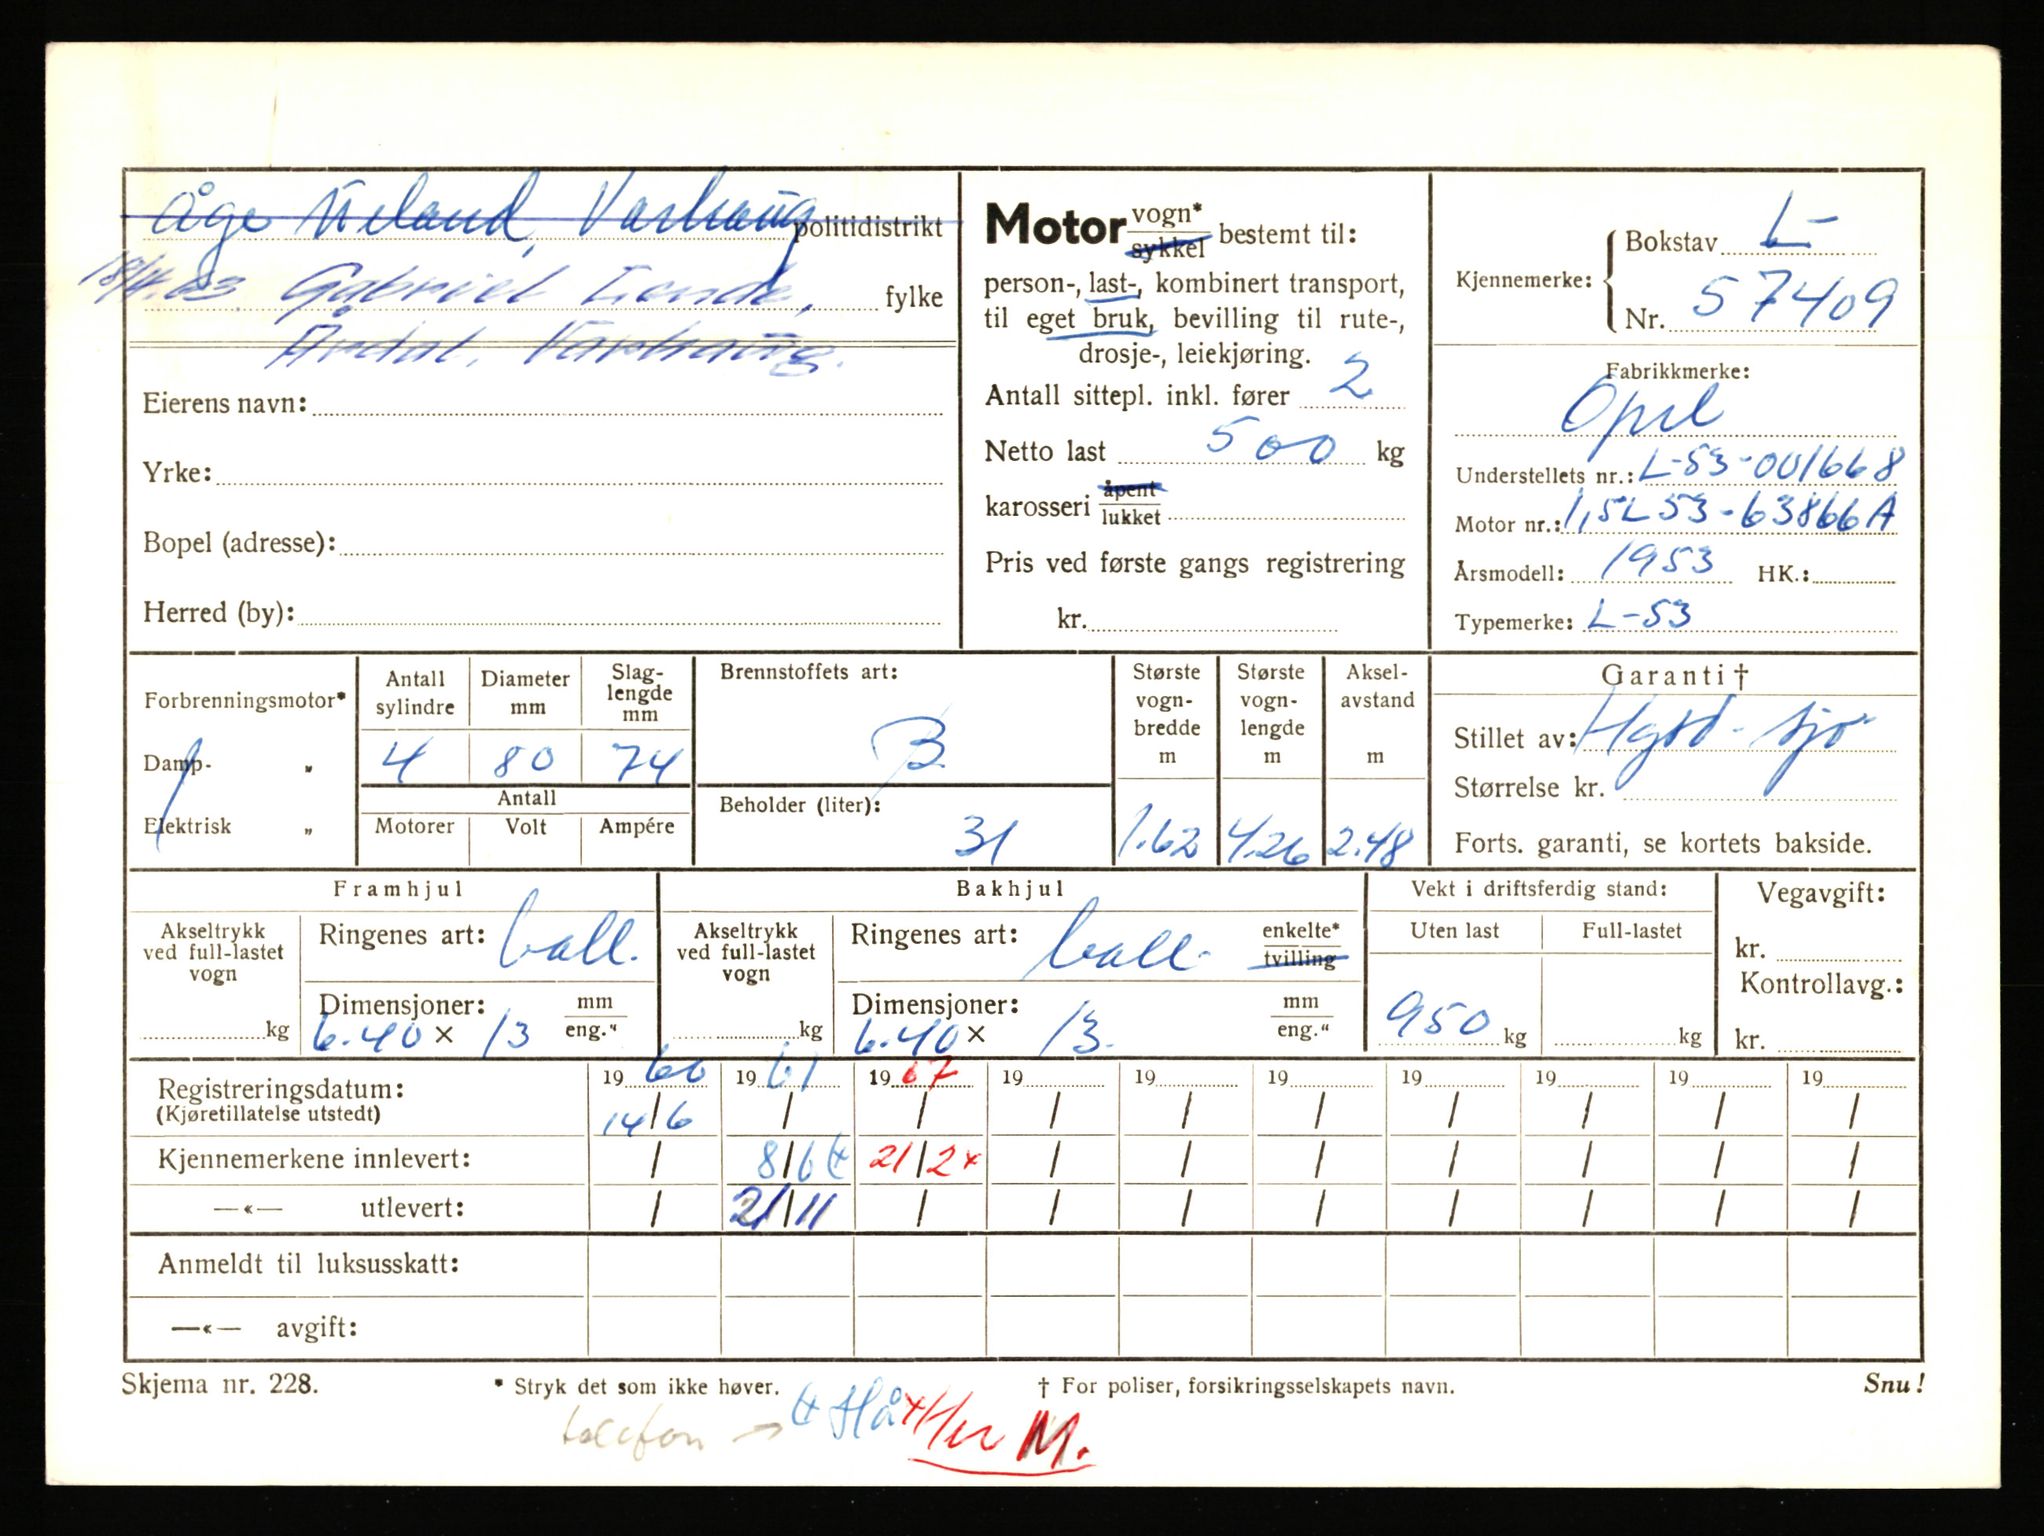 Åge Neland, Varhaug politidistrikt
18/4.63 Gabriel Lende, fylke
Årdal, Varhaug.
Eierens navn:
Yrke:
Bopel (adresse):
Herred (by):
Motor vogn* sykkel bestemt til:
person-, last-, kombinert transport,
til eget bruk, bevilling til rute-,
drosje-, leiekjøring.
Antall sittepl. inkl. fører 2
Netto last 500 kg
karosseri åpent lukket
Pris ved første gangs registrering
kr.
Kjennemerke: Bokstav L-
Nr. 57409
Fabrikkmerke:
Opel
Understellets nr.: L-53-001668
Motor nr.: 1,5L53-63866A
Årsmodell: 1953 HK.:
Typemerke: L-53
Forbrenningsmotor*
Damp- "
Elektrisk "
Antall sylindre Diameter mm Slag-lengde mm
4 80 74
Antall
Motorer Volt Ampére
Brennstoffets art:
B
Beholder (liter):
31
Største vogn-bredde m Største vogn-lengde m Aksel-avstand m
1.62 4.26 2.48
Garanti †
Stillet av: - sjø
Størrelse kr.
Forts. garanti, se kortets bakside.
Framhjul
Akseltrykk ved full-lastet vogn
kg
Ringenes art: ball.
Dimensjoner: mm eng."
6.40 x 13
Bakhjul
Akseltrykk ved full-lastet vogn
kg
Ringenes art: ball. enkelte* tvilling
Dimensjoner: mm eng."
6.40 x 13.
Vekt i driftsferdig stand:
Uten last Full-lastet
950 kg kg
Vegavgift:
kr.
Kontrollavg.:
kr.
Registreringsdatum: 19 60 19 61 19 67 19 19 19 19 19 19 19
(Kjøretillatelse utstedt) 14/6 / / / / / / / / /
Kjennemerkene innlevert: / 8/6 x 21/2 x / / / / / / /
—«— utlevert: / 21/11 / / / / / / / /
Anmeldt til luksusskatt:
—«— avgift:
Skjema nr. 228. * Stryk det som ikke høver. † For poliser, forsikringsselskapets navn. Snu!
telefon → x Hå x Her M.